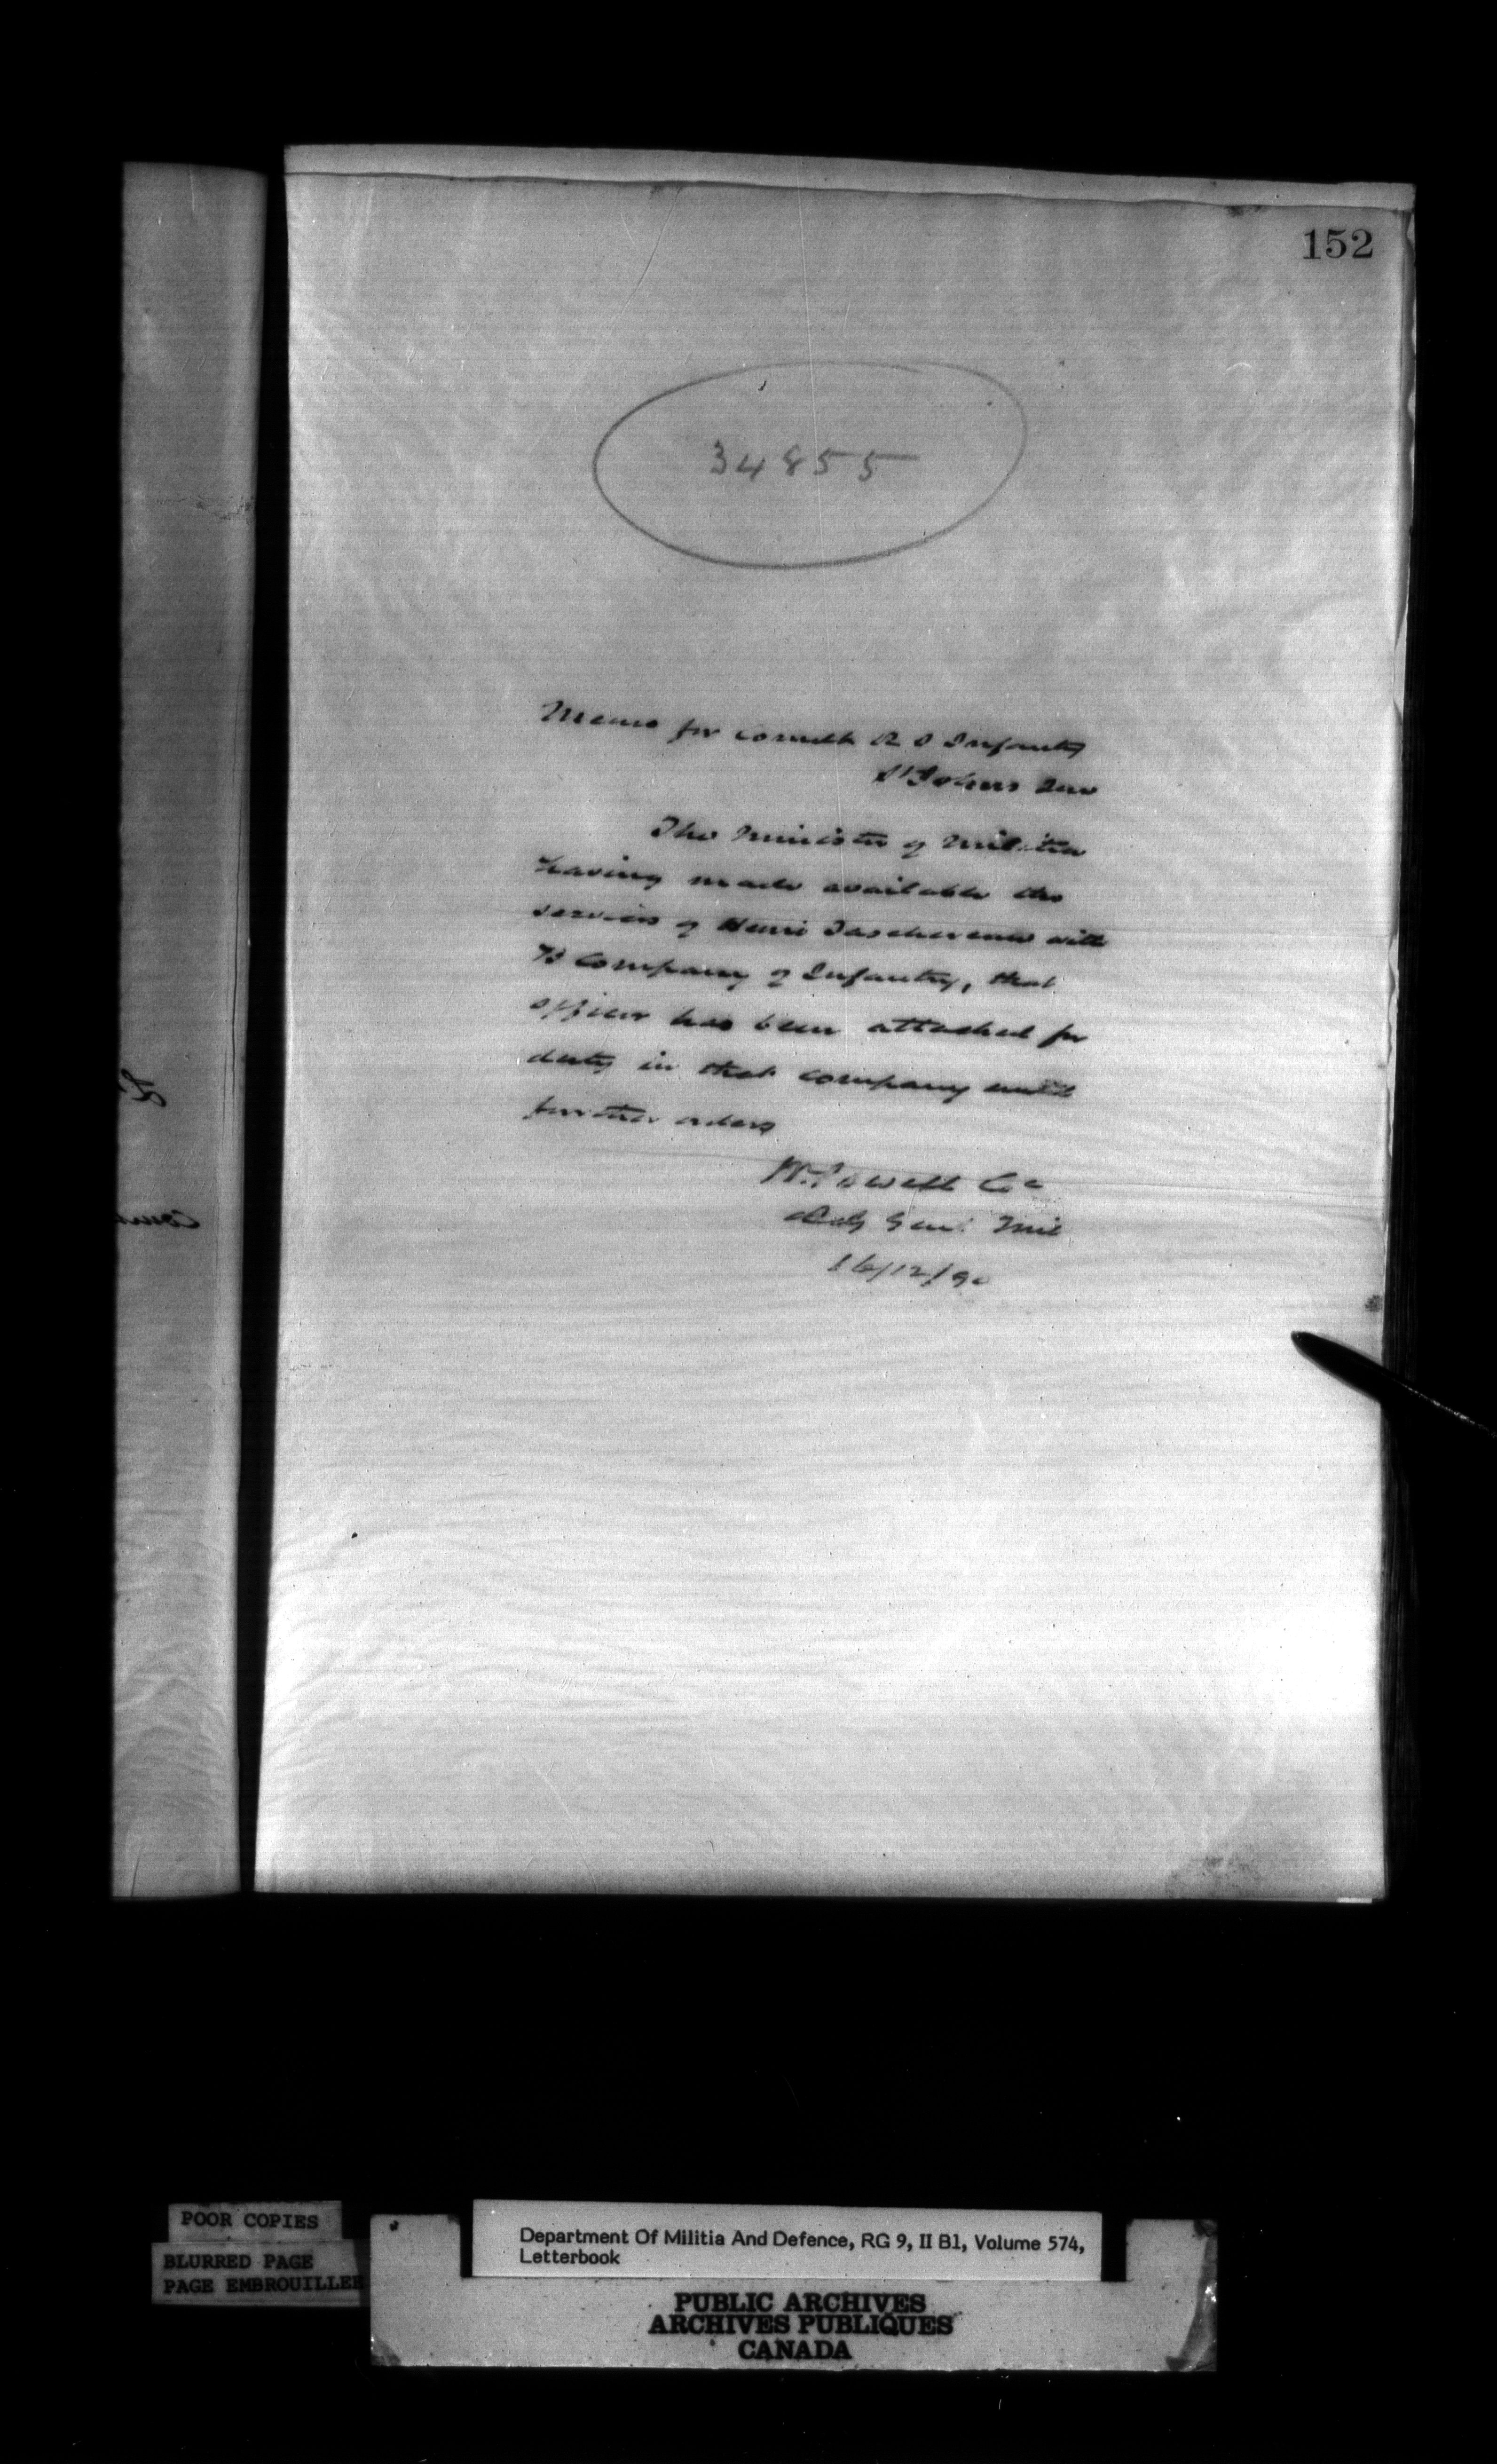 152
34855
Memo for Comdt R S Infantry
St Johns Que
The Minister of Militia
having made available the
services of Henri Taschereau with
B Company of Infantry, that
officer has been attached for
duty in that company until
further orders
W. Powell Col
Adj Genl Mil
16/12/90
POOR COPIES
BLURRED PAGE
PAGE EMBROUILLEE
Department Of Militia And Defence, RG 9, II B1, Volume 574,
Letterbook
PUBLIC ARCHIVES
ARCHIVES PUBLIQUES
CANADA